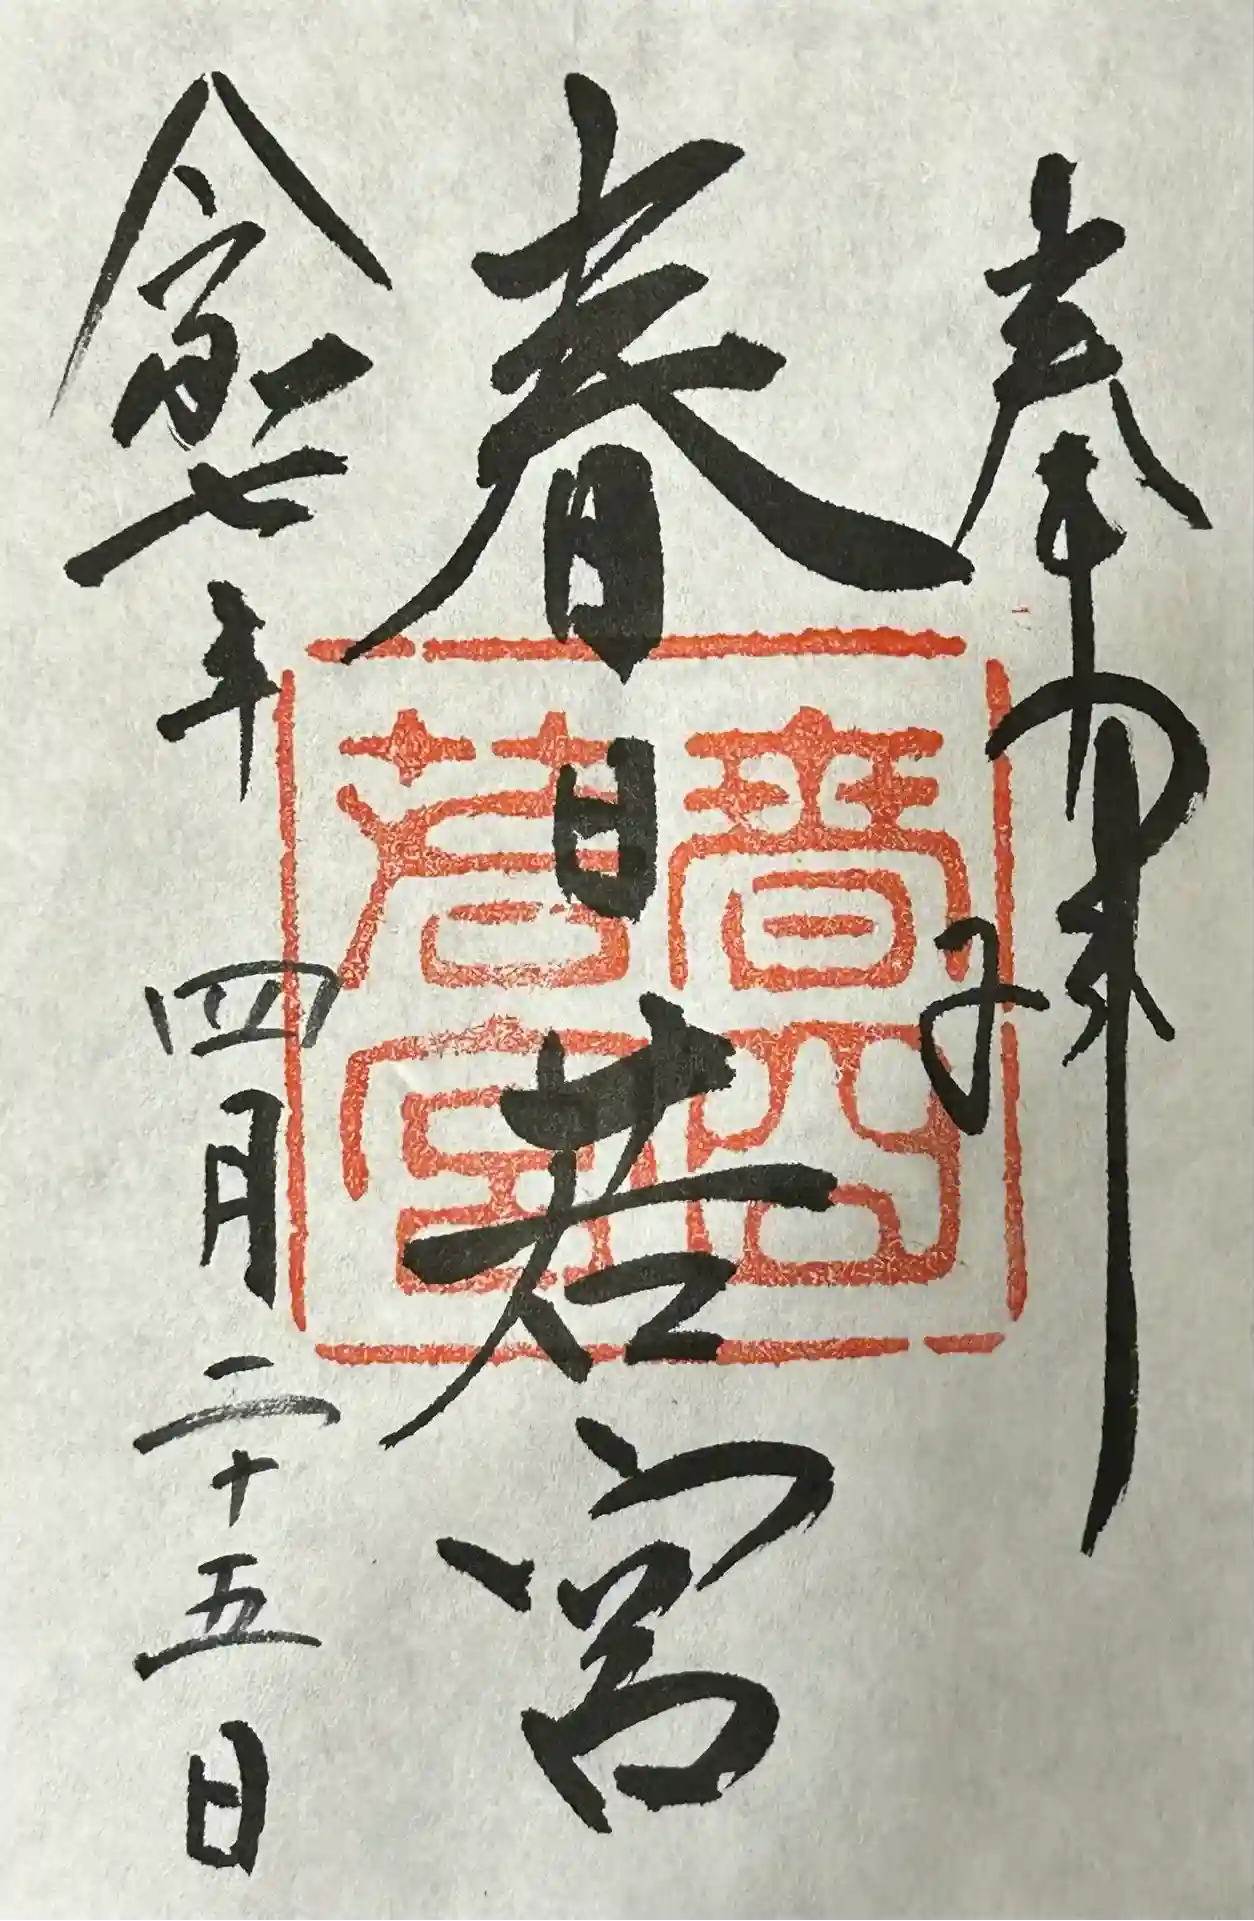 奉拝
春日若宮
令和七年四月二十五日